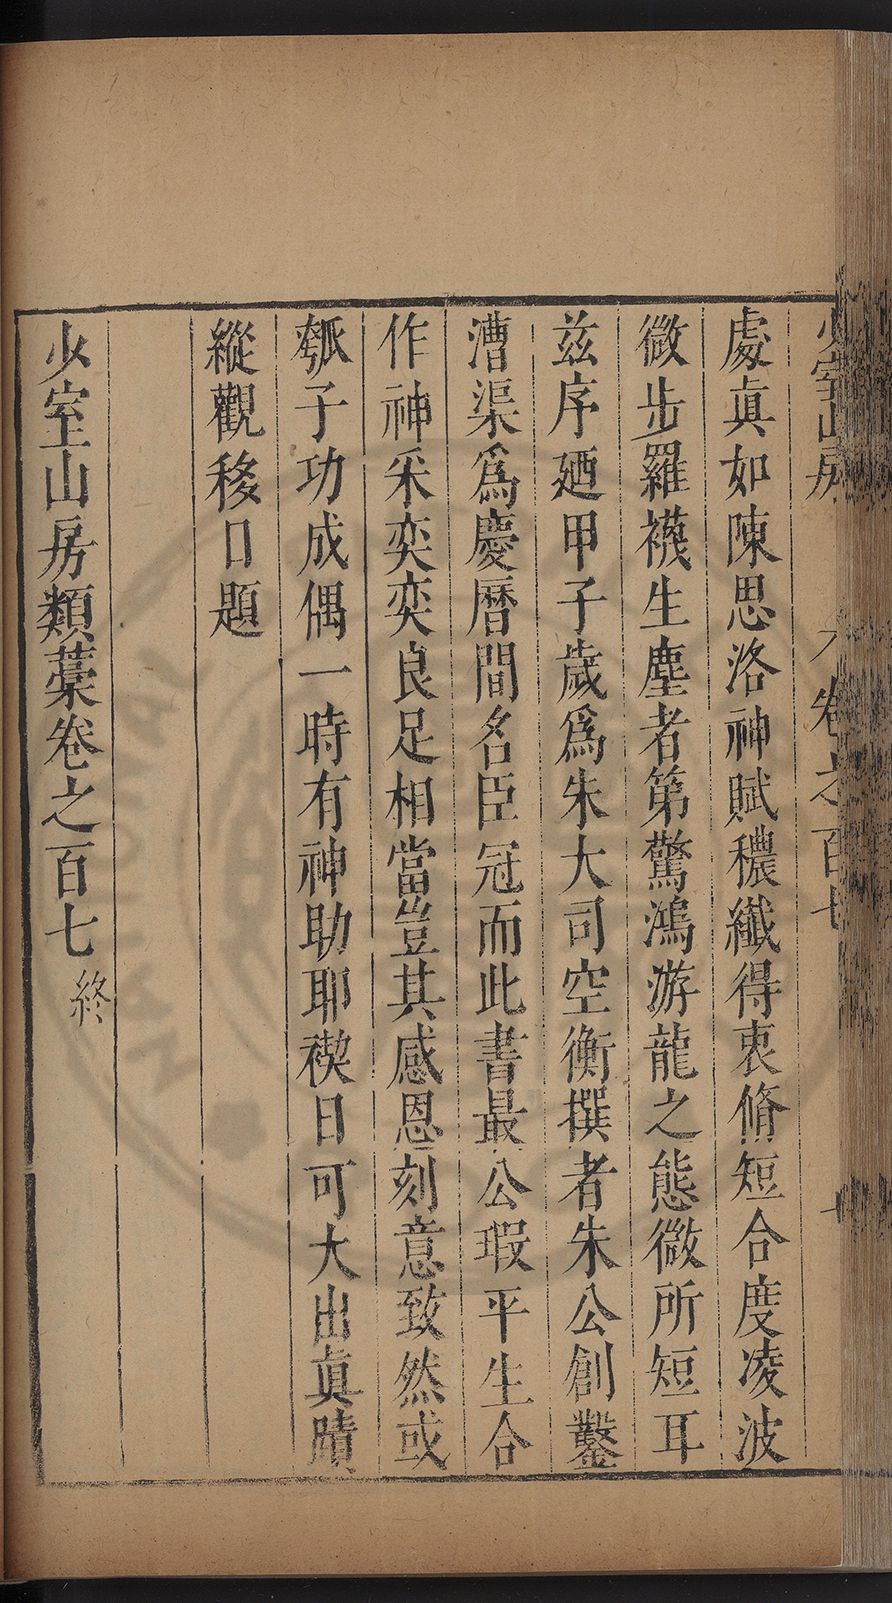 處真如陳思洛神賦穠纖得衷脩短合度凌波
微步羅襪生塵者第驚鴻游龍之態微所短耳
兹序廼甲子歲爲朱大司空衡撰者朱公創鑿
漕渠爲慶曆間名臣冠而此書最公瑕平生合
作神采奕奕良足相當豈其感恩刻意致然或
瓠子功成偶一時有神助耶禊日可大出真蹟
縱觀移日題
少室山房類藁卷之百七 終